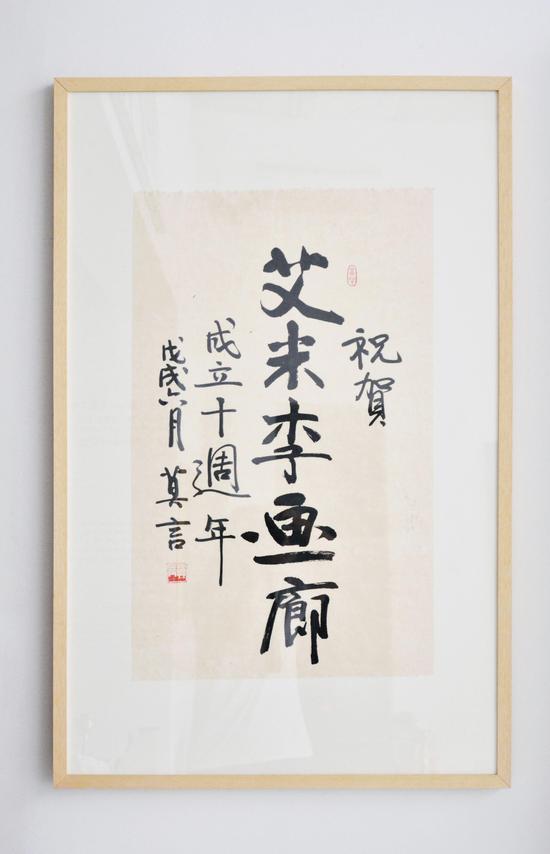 祝賀
艾米李画廊
成立十週年
戊戌六月 莫言